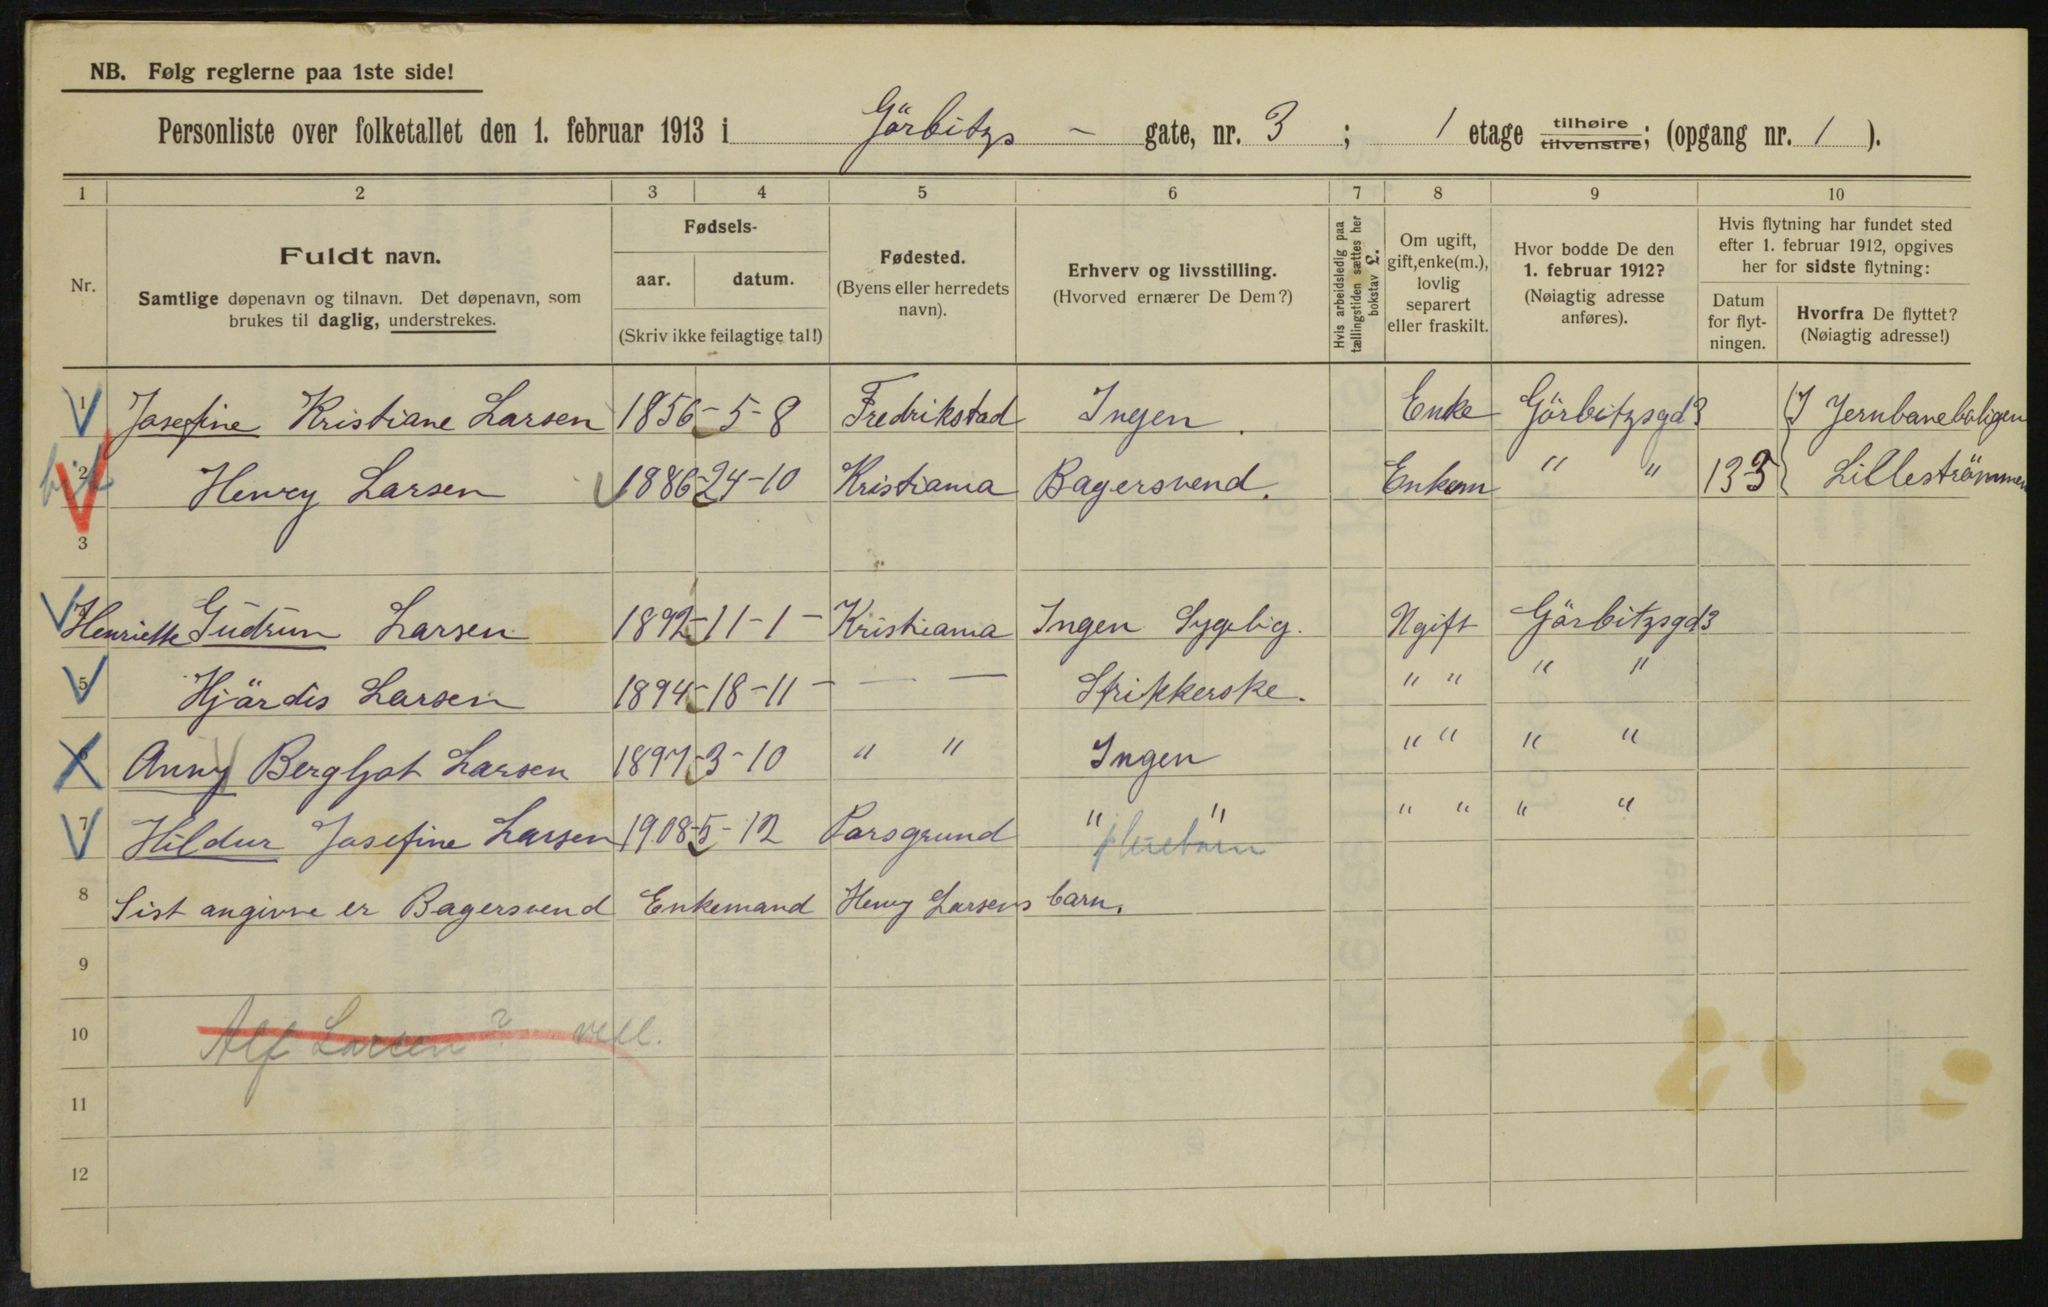 NB. Følg reglerne paa 1ste side!
Personliste over folketallet den 1. februar 1913 i Görbitzs - gate, nr. 3 ; 1 etage tilhøire tilvenstre; (opgang nr. 1 ).
1 2 3 4 5 6 7 8 9 10
Nr.
Fuldt navn.
Samtlige døpenavn og tilnavn. Det døpenavn, som
brukes til daglig, understrekes.
Fødsels-
aar. datum.
(Skriv ikke feilagtige tal!)
Fødested.
(Byens eller herredets
navn).
Erhverv og livsstilling.
(Hvorved ernærer De Dem?)
Hvis arbeidsledig paa
tællingstiden sættes her
bokstav L.
Om ugift,
gift, enke(m.),
lovlig
separert
eller fraskilt.
Hvor bodde De den
1. februar 1912?
(Nøiagtig adresse
anføres).
Hvis flytning har fundet sted
efter 1. februar 1912, opgives
her for sidste flytning:
Datum
for flyt-
ningen.
Hvorfra De flyttet?
(Nøiagtig adresse!)
1 Josefine Kristiane Larsen 1856 - 5 - 8 Fredrikstad Ingen. Enke Görbitzsgd 3 { I Jernbaneboligen
2 Henry Larsen 1886 - 24 - 10 Kristiania Bagersvend. Enkem " " 13 3 { Lilleströmmen
3
4 Henriette Gudrun Larsen 1892 - 11 - 1 - Kristiania Ingen Sygelig. Ugift Görbitzsgd 3
5 Hjördis Larsen 1894 - 18 - 11 - — — Strikkerske. " " " "
6 Anny Bergljot Larsen 1897 - 3 - 10 " " Ingen " " " "
7 Hildur Josefine Larsen 1908 - 5 - 12 Porsgrund " " " " " "
8 Sist angivne er Bagersvend Enkemand Henry Larsens barn.
9
10 Alf Larsen?
11
12